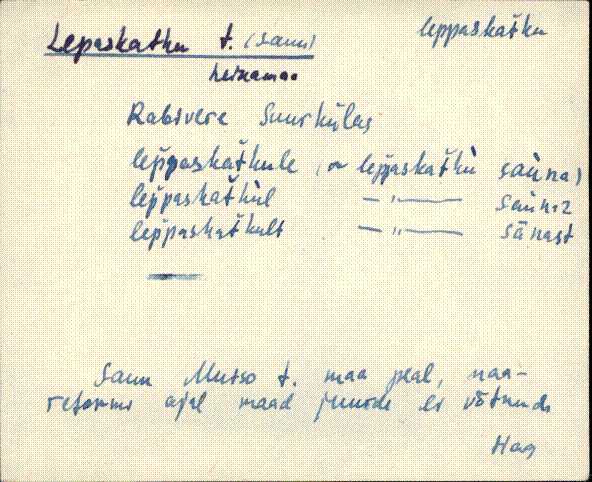 Lepaskatku t. (saun) leppaskat̆ku
heinamaa
Rabivere Suurkülas
lep̆paskat̆kule (~ lep̆paskat̆ku sàuna)
lep̆paskat̆kùl — „ — sàunaz
lep̆paskat̆kult — „ — sànast
Saun Mutso t. maa peal, maa-
reformi ajal maad juurde ei võtnud
Hag